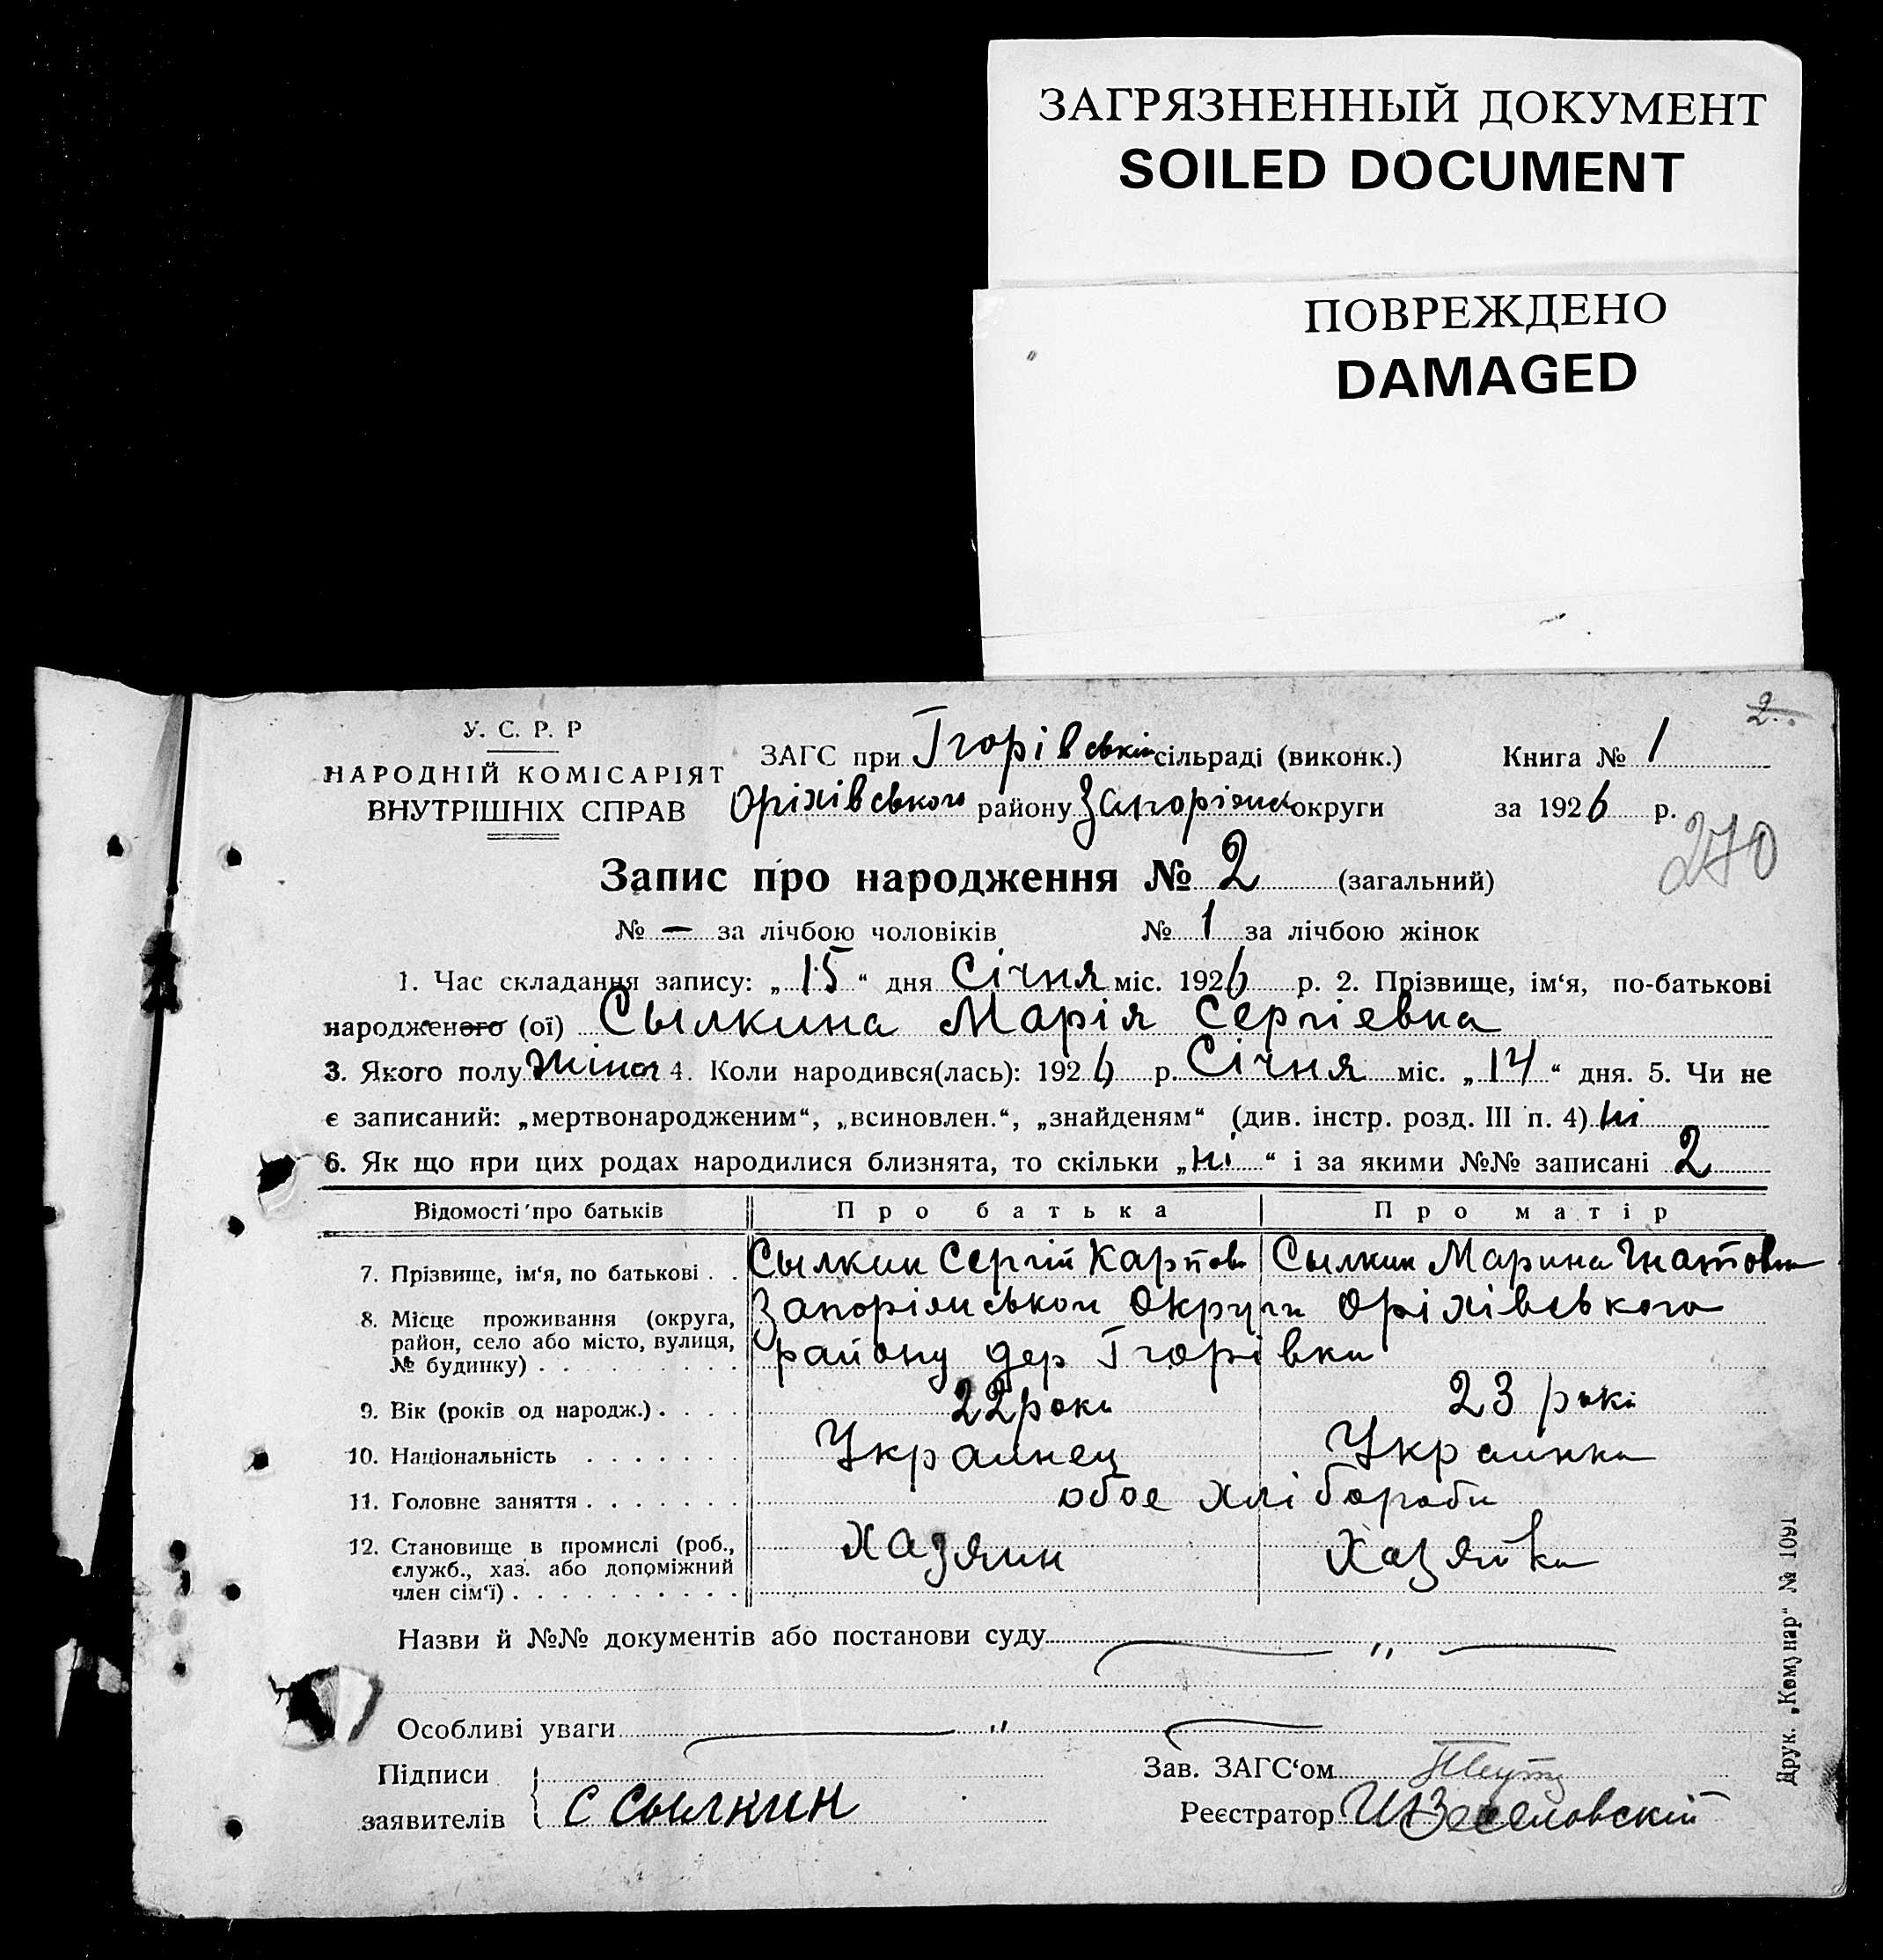 ЗАГРЯЗНЕННЫЙ ДОКУМЕНТ
SOILED DOCUMENT
ПОВРЕЖДЕНО
DAMAGED
2
У. С. Р. Р
НАРОДНІЙ КОМІСАРІЯТ
ВНУТРІШНІХ СПРАВ
ЗАГС при Ігорівській сільраді (виконк.) Книга № 1
Оріхівського району Запоріжськ округи за 1926 р.
270
Запис про народження № 2 (загальний)
№ — за лічбою чоловіків № 1 за лічбою жінок
1. Час складання запису: „15“ дня Січня міс. 1926 р. 2. Прізвище, ім‘я, по-батькові
народженого (ої) Сылкина Марія Сергіевна
3. Якого полу жіноч 4. Коли народився(лась): 1926 р. Січня міс. „14“ дня. 5. Чи не
є записаний: „мертвонародженим“, „всиновлен.“, „знайденям“ (див. інстр. розд. III п. 4) ні
6. Як що при цих родах народилися близнята, то скільки „ні“ і за якими №№ записані 2
Відомості про батьків Про батька Про матір
7. Прізвище, ім‘я, по батькові . . Сылкин Сергій Карпов Сылкин Марина Гнатовн
8. Місце проживання (округа, район, село або місто, вулиця, № будинку) . . . . . . . . Запоріжськои Округи Оріхівського
району дер Ігорівки
9. Вік (років од народж.) . . . . 22 роки 23 рокі
10. Національність . . . . . . . Украинец Украинка
11. Головне заняття . . . . . . . обое хлібороби
12. Становище в промислі (роб., служб., хаз. або допоміжний член сім‘ї) . . . . . . . . . . Хазяин Хазяйка
Назви й №№ документів або постанови суду — „ —
Особливі уваги — „ —
Підписи Зав. ЗАГС‘ом
заявителів С Сылкин Реєстратор И Веселовскій
Друк. „Комунар“ № 1091